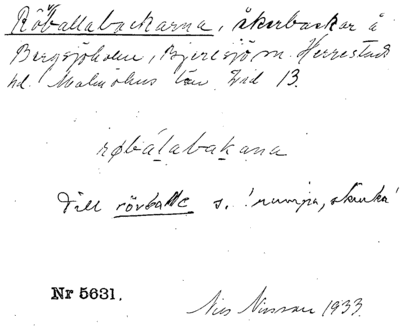 Röballabackarna, åkerbackar å
Bergsjöholm, Bjeresjö sn. Herrestads
hd. Malmöhus län Zid 13.
røbálabakana
Till rövballe s. 'rumpa, skinka'
Nr 5631.
Nils Nilsson 1933.